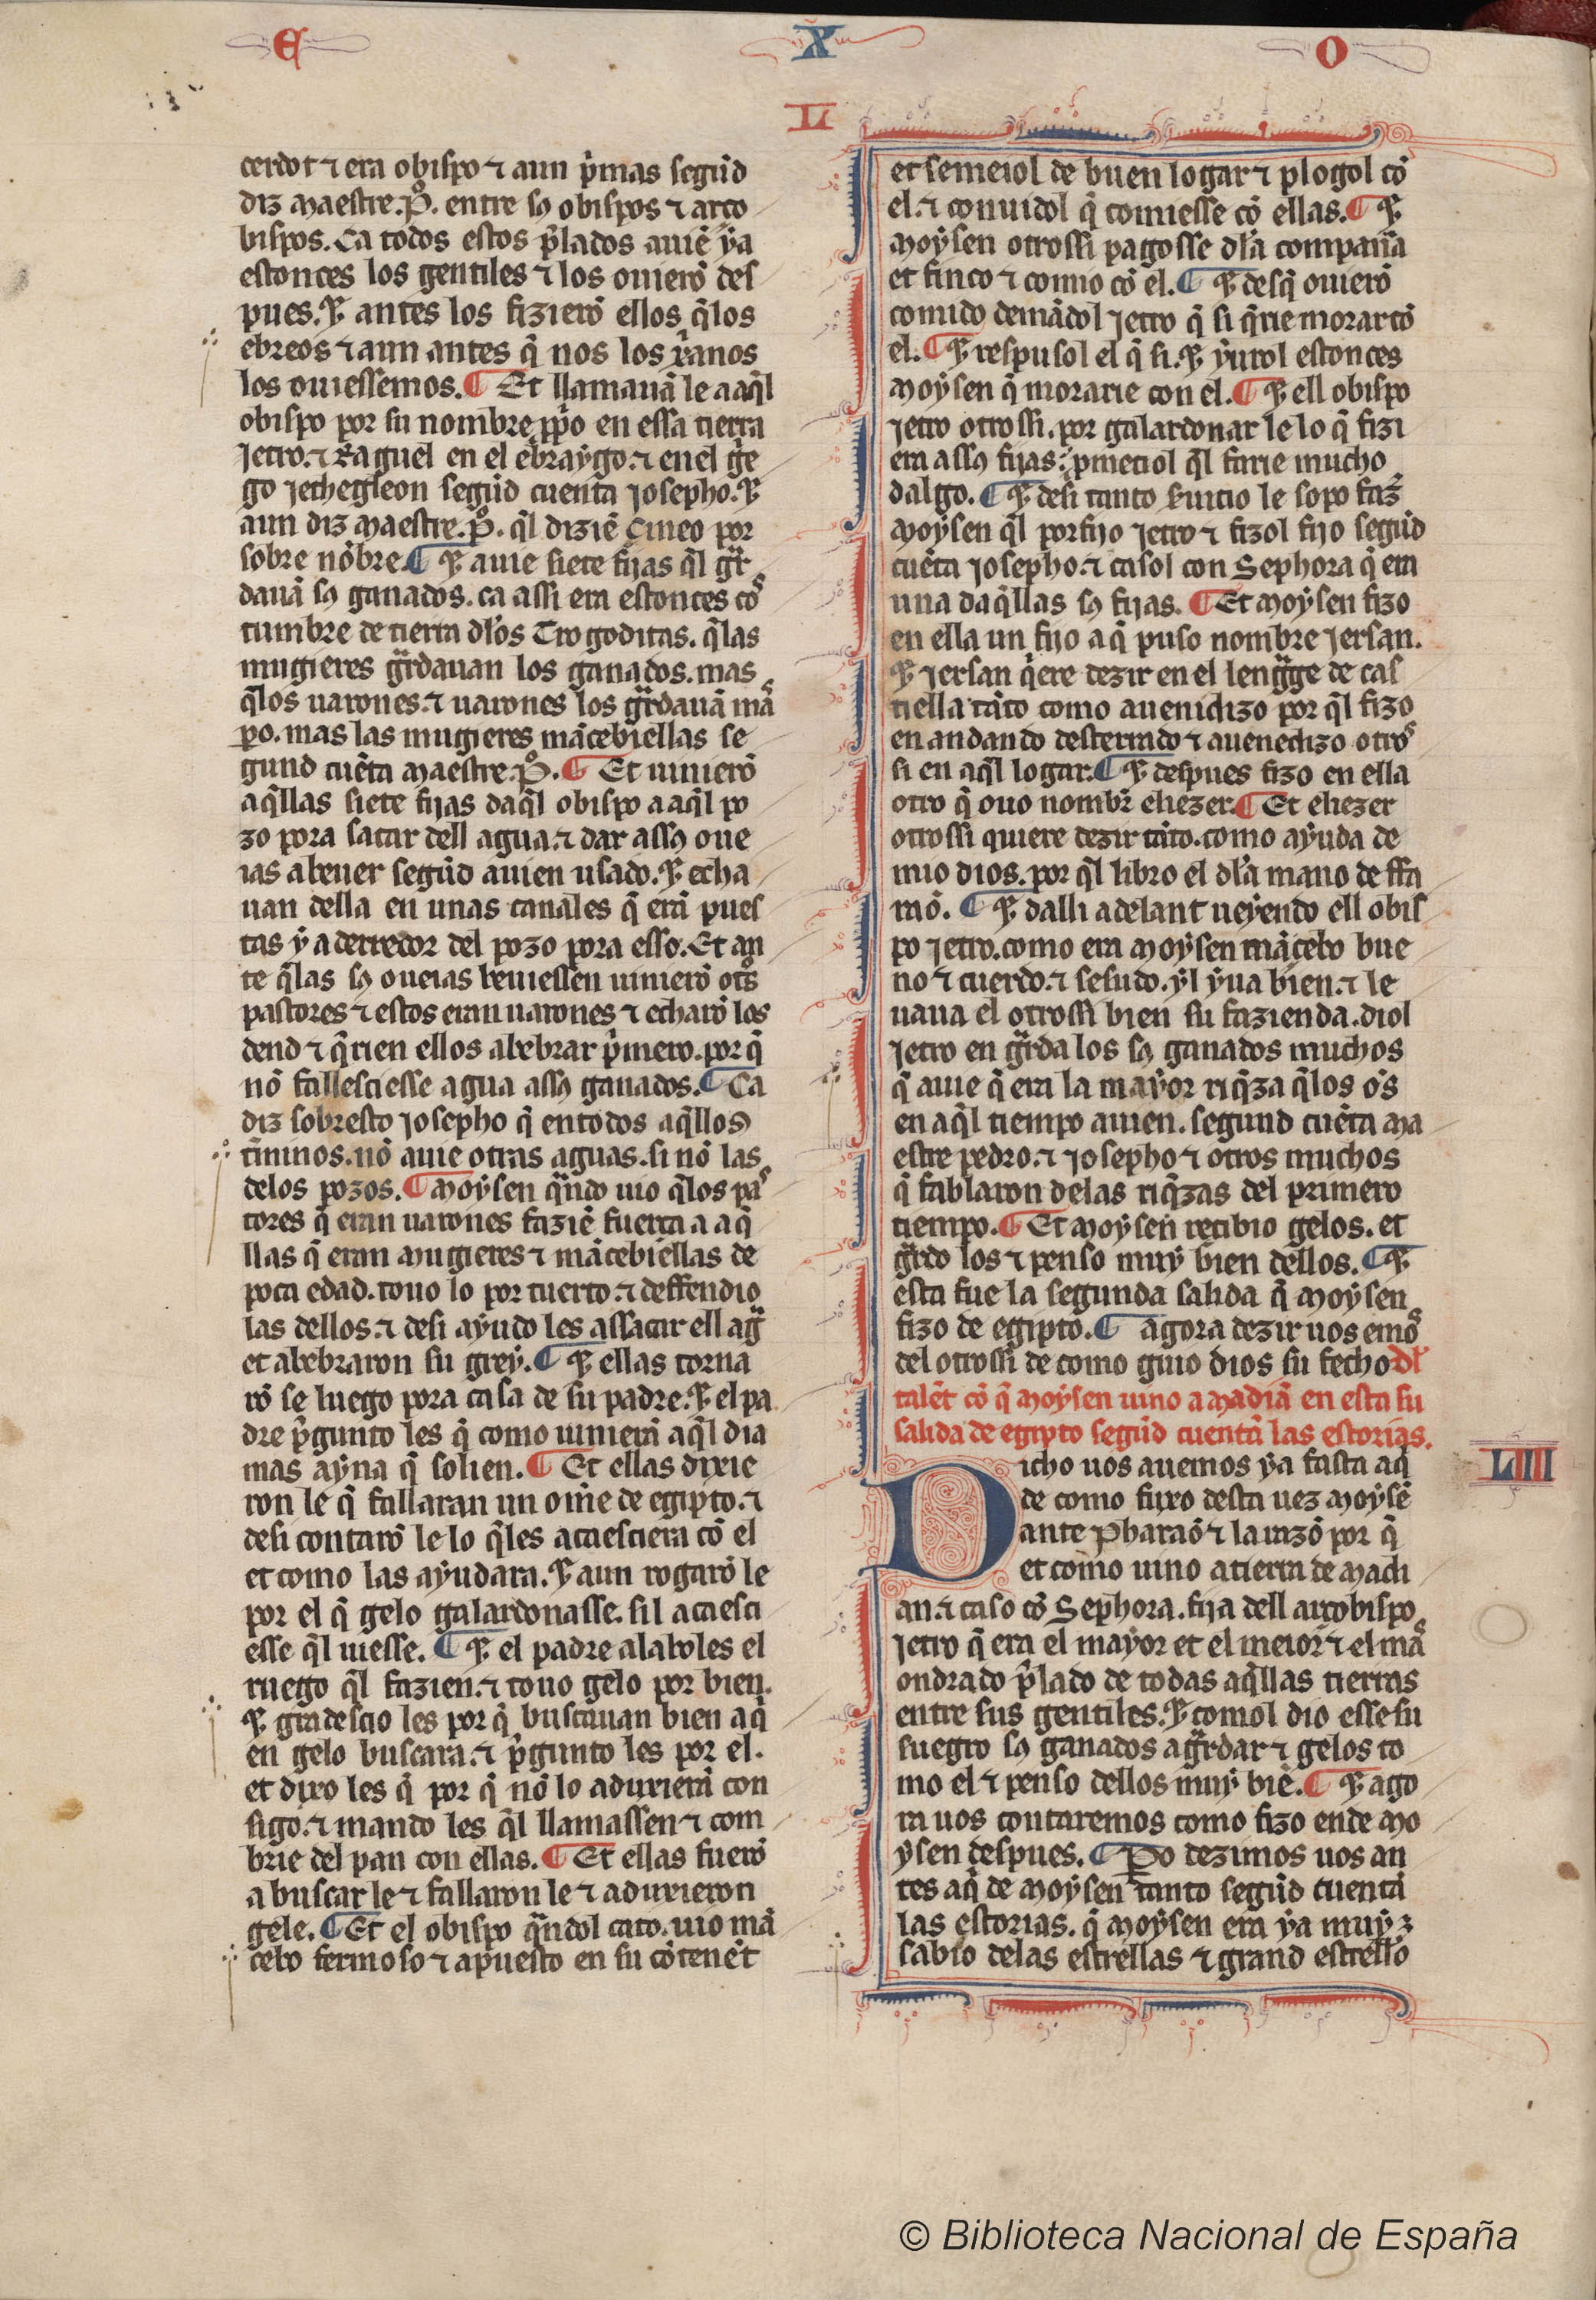 E X O
L
cerdot ⁊ era obispo ⁊ aun p̃mas segũd
diz maestre .P̊. entre sꝯ obispos ⁊ arço
bispos. Ca todos estos p̃lados auiẽ ya
estonces los gentiles ⁊ los ouierõ des
pues. ⁊ antes los fizierõ ellos q̃ los
ebreos ⁊ aun antes q̃ nos los xr̃anos
los ouiessemos. ¶ Et llamauã le a aq̃l
obispo por su nombre pp̃o en essa tierra
Jetro. ⁊ Raguel en el ebraygo. ⁊ en el gr̃e
go jethegleon segũd cuenta josepho. ⁊
aun diz maestre .P̊. q̃l diziẽ Cineo por
sobre nõbre ¶ ⁊ auie siete fijas q̃l gr̃
dauã sꝯ ganados. ca assi era estonces cos
tumbre de tierra dl̃os Trogoditas. q̃ las
mugieres gr̃dauan los ganados. mas
q̃ los uarones. ⁊ uarones los gr̃dauã mas
po. mas las mugieres mãcebiellas se
gund cuẽta maestre .P̊. ¶ Et uinierõ
aq̃llas siete fijas daq̃l obispo a aq̃l po
zo pora sacar dell agua. ⁊ dar assꝯ oue
ias a beuer segũd auien usado. ⁊ echa
uan della en unas canales q̃ erã pues
tas y a derredor del pozo pora esso. Et an
te q̃ las sꝯ oueias beuiessen uinierõ ots̃
pastores ⁊ estos eran uarones ⁊ echarõ los
dend ⁊ q̃rien ellos abebrar p̃mero. por q̃
nõ fallesciesse agua assꝯ ganados. ¶ Ca
diz sobresto josepho q̃ en todos aq̃llos
t̃minos. nõ auie otras aguas. si nõ las
delos pozos. ¶ Moysen q̃ndo uio q̃ los pas
tores q̃ eran uarones faziẽ fuerça a aq̃
llas q̃ eran mugieres ⁊ mãcebiellas de
poca edad. touo lo por tuerto. ⁊ deffendio
las dellos. ⁊ desi ayudo les assacar ell agã
et abebraron su grey. ¶ ⁊ ellas torna
rõ se luego pora casa de su padre. ⁊ el pa
dre p̃gunto les q̃ como uinierã aq̃l dia
mas ayna q̃ solien. ¶ Et ellas dixie
ron le q̃ fallaran un om̃e de egipto. ⁊
desi contarõ le lo q̃ les acaesciera cõ el
et como las ayudara. ⁊ aun rogarõ le
por el q̃ gelo galardonasse. sil acaesci
esse q̃l uiesse. ¶ ⁊ el padre alaboles el
ruego q̃l fazien. ⁊ touo gelo por bien.
⁊ gradescio les por q̃ buscauan bien a q̃
en gelo buscara. ⁊ p̃gunto les por el.
et dixo les q̃ por q̃ nõ lo aduxierã con
sigo. ⁊ mando les q̃l llamassen ⁊ com
brie del pan con ellas. ¶ Et ellas fuerõ
a buscar le ⁊ fallaron le ⁊ aduxieron
gele. ¶ Et el obispo q̃ndol cato. uio mã
cebo fermoso ⁊ apuesto en su cõtenẽt
et semeiol de buen logar ⁊ plogol cõ
el. ⁊ conuidol q̃ comiesse cõ ellas. ¶ ⁊
moysen otrossi pagosse dl̃a compañia
et finco ⁊ comio cõ el. ¶ ⁊ desq̃ ouierõ
comido demãdol jetro q̃ si q̃rie morar cõ
el. ¶ ⁊ respusol el q̃ si. ⁊ yurol estonces
moysen q̃ morarie con el. ¶ ⁊ ell obispo
jetro otrossi. por galardonar le lo q̃ fizi
era assꝯ fijas. p̃metiol q̃l farie mucho
dalgo. ¶ ⁊ desi tanto s̃uicio le sopo faz̃
moysen q̃l porfijo jetro ⁊ fizol fijo segũd
cuẽta josepho. ⁊ casol con Sephora q̃ era
una daq̃llas sꝯ fijas. ¶ Et moysen fizo
en ella un fijo a q̃ puso nombre jersan.
⁊ jersan q̃ere dezir en el lengũge de cas
tiella tãto como auenidizo por q̃l fizo
en andando desterrado ⁊ auenedizo otros
si en aq̃l logar. ¶ ⁊ despues fizo en ella
otro q̃ ouo nombr̃ eliezer. ¶ Et eliezer
otrossi quiere dezir tãto. como ayuda de
mio dios. por q̃l libro el dl̃a mano de ffa
raõ. ¶ ⁊ dalli adelant ueyendo ell obis
po jetro. como era moysen mãcebo bue
no ⁊ cuerdo. ⁊ sesudo. yl yua bien. ⁊ le
uaua el otrossi bien su fazienda. diol
jetro en gr̃da los sꝯ ganados muchos
q̃ auie q̃ era la mayor riq̃za q̃ los om̃s
en aq̃l tiempo auien. segund cuẽta ma
estre pedro. ⁊ josepho ⁊ otros muchos
q̃ fablaron delas riq̃zas del primero
tiempo. ¶ Et moysen recibio gelos. et
gr̃do los ⁊ penso muy bien dellos. ¶ ⁊
esta fue la segunda salida q̃ moysen
fizo de egipto. ¶ agora dezir uos emos
del otrossi de como guio dios su fecho dl̃
talẽt cõ q̃ moysen uino a madiã en esta su
salida de egipto segũd cuentã las estorias.
LIII
Dicho uos auemos ya fasta aq̃
de como fuxo desta uez moysẽ
ante Pharaõ ⁊ la razõ por q̃
et como uino a tierra de madi
an. ⁊ caso cõ Sephora. fija dell arçobispo
jetro q̃ era el mayor et el meior ⁊ el mas
ondrado p̃lado de todas aq̃llas tierras
entre sus gentiles. ⁊ comol dio esse su
suegro sꝯ ganados a gr̃dar ⁊ gelos to
mo el ⁊ penso dellos muy biẽ. ¶ ⁊ ago
ra uos contaremos como fizo ende mo
ysen despues. ¶ Po dezimos uos an
tes aq̃ de moysen tanto segũd cuentã
las estorias. q̃ moysen era ya muy
sabio delas estrellas ⁊ grand estrello
© Biblioteca Nacional de España